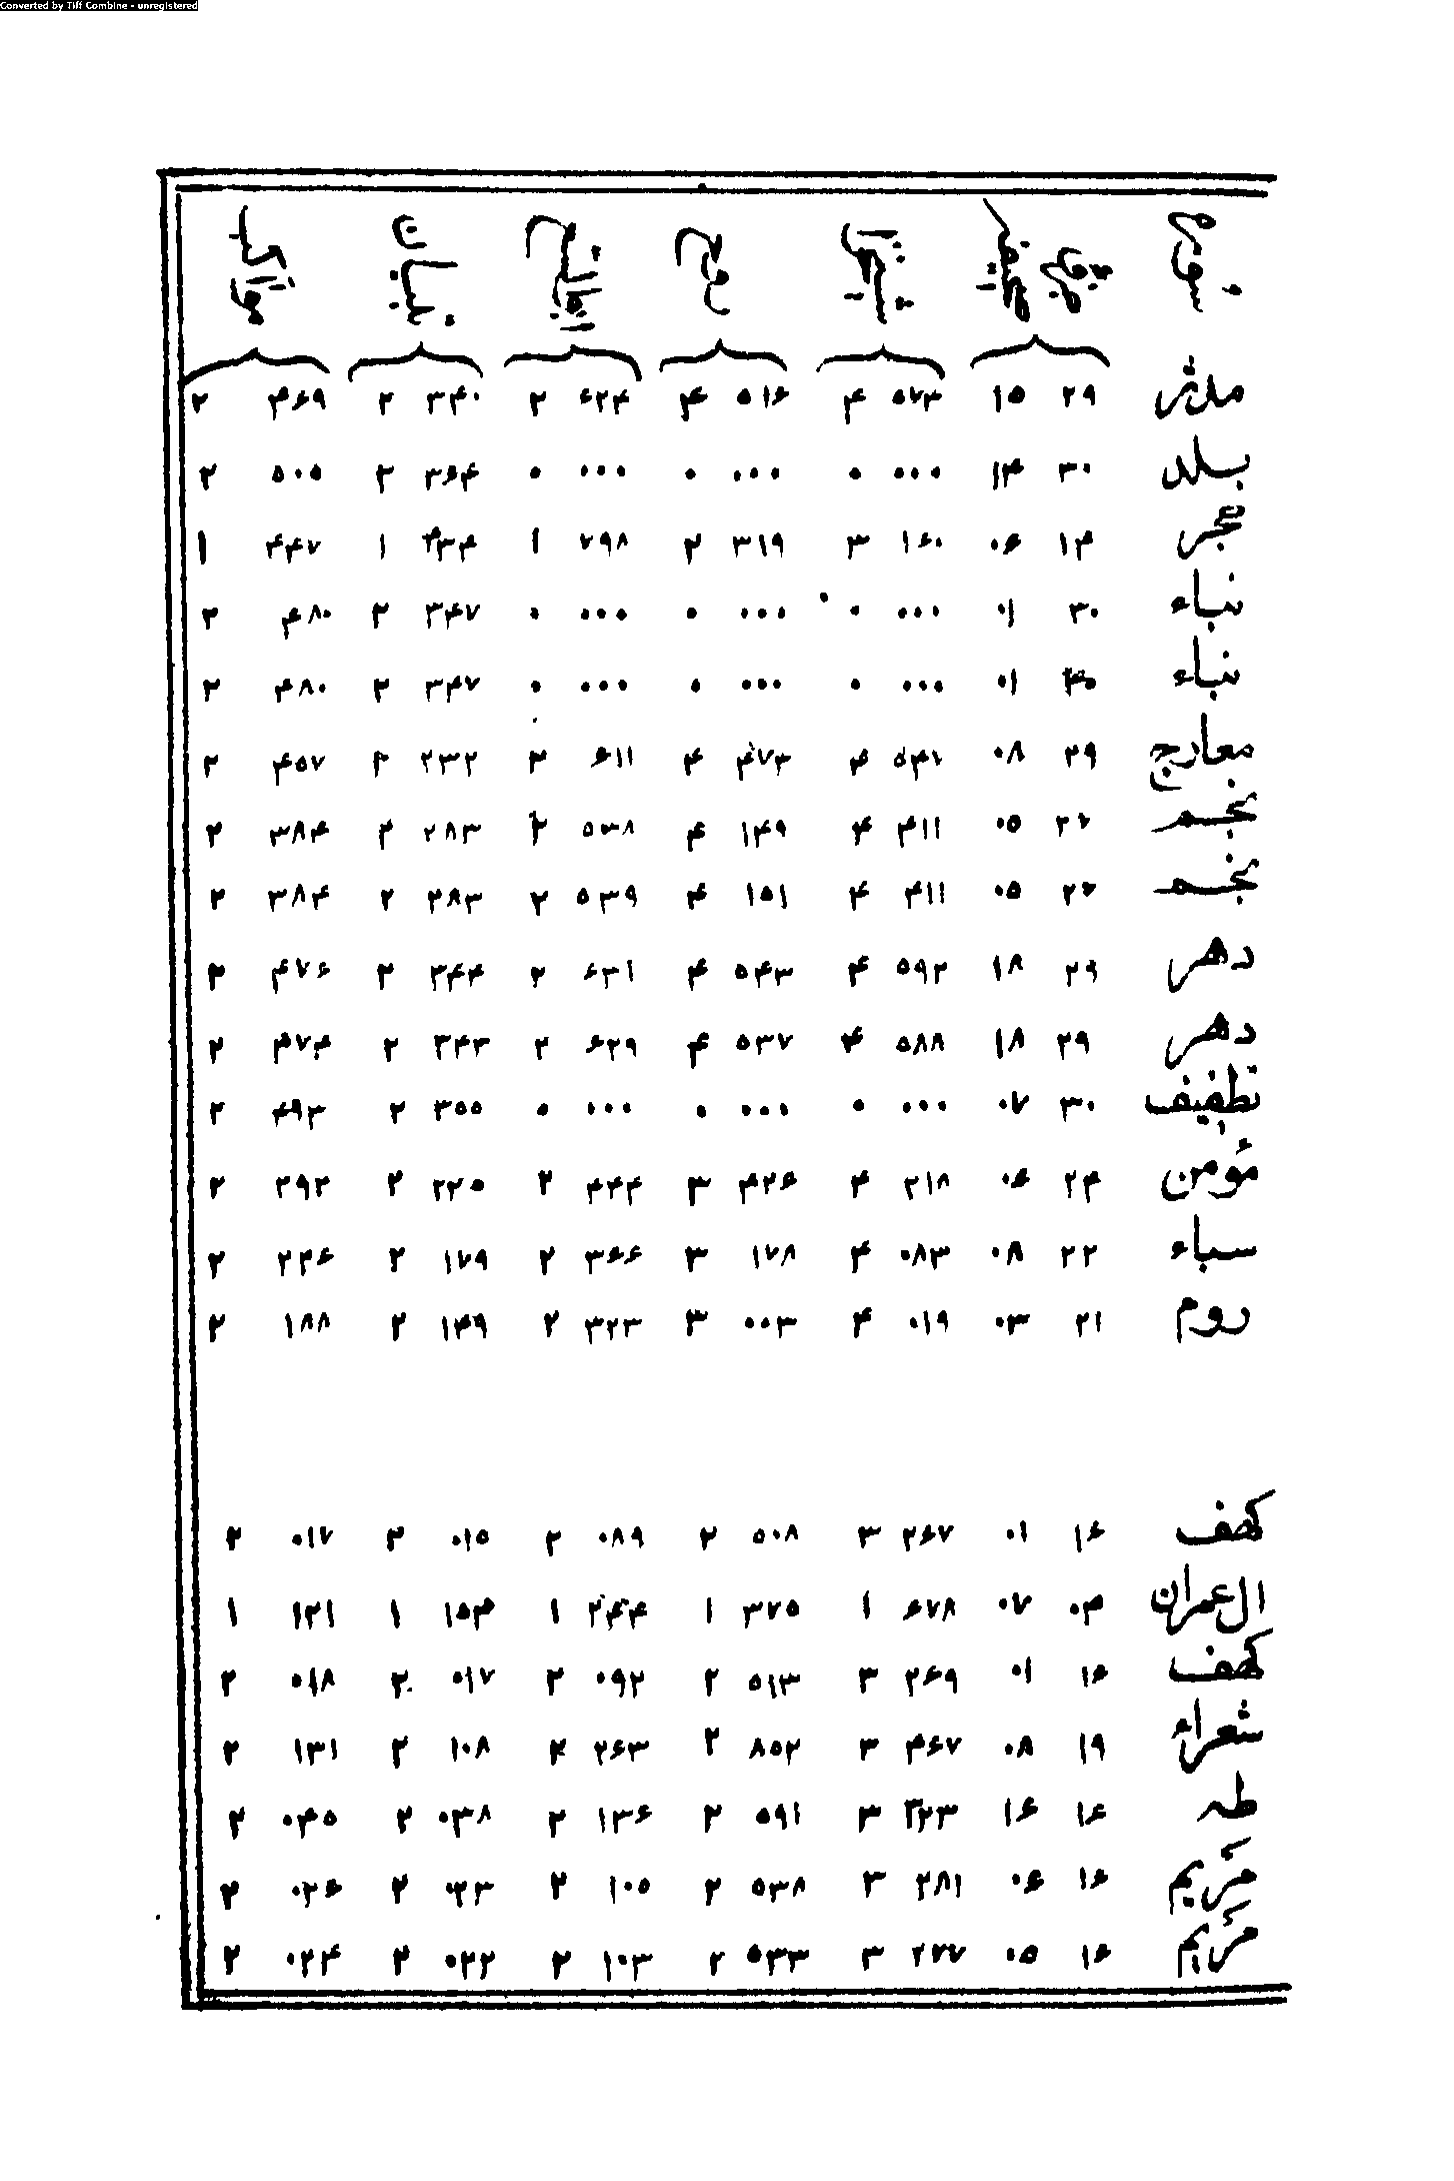 Converted by Tiff Combine - unregistered
سوره
مدثر ۲۹ ۱۵ ۵۷۳ ۴ ۵۱۶ ۴ ۶۲۴ ۲ ۳۴۰ ۲ ۴۶۹ ۲
بلد ۳۰ ۱۴ ۰۰۰ ۰ ۰۰۰ ۰ ۰۰۰ ۰ ۳۶۴ ۲ ۵۰۵ ۲
۱۴ ۰۶ ۱۶۰ ۳ ۳۱۹ ۲ ۷۹۸ ۱ ۳۳۴ ۱ ۴۴۷ ۱
نباء ۳۰ ۰۱ ۰۰۰ ۰ ۰۰۰ ۰ ۰۰۰ ۰ ۳۴۷ ۲ ۴۸۰ ۲
نباء ۳۰ ۰۱ ۰۰۰ ۰ ۰۰۰ ۰ ۰۰۰ ۰ ۳۴۷ ۲ ۴۸۰ ۲
معارج ۲۹ ۰۸ ۵۴۱ ۴ ۴۷۳ ۴ ۶۱۱ ۲ ۲۳۲ ۲ ۴۵۷ ۲
نجم ۲۷ ۰۵ ۴۱۱ ۴ ۱۴۹ ۴ ۵۳۸ ۲ ۲۸۳ ۲ ۳۸۴ ۲
نجم ۲۷ ۰۵ ۴۱۱ ۴ ۱۵۱ ۴ ۵۳۹ ۲ ۲۸۳ ۲ ۳۸۴ ۲
دهر ۲۹ ۱۸ ۵۹۲ ۴ ۵۴۳ ۴ ۶۳۱ ۲ ۳۴۴ ۲ ۴۷۶ ۲
دهر ۲۹ ۱۸ ۵۸۸ ۴ ۵۳۷ ۴ ۶۲۹ ۲ ۳۴۳ ۲ ۴۷۴ ۲
تطفیف ۳۰ ۰۷ ۰۰۰ ۰ ۰۰۰ ۰ ۰۰۰ ۰ ۳۵۵ ۲ ۴۹۳ ۲
مؤمن ۲۴ ۰۶ ۲۱۸ ۴ ۴۲۶ ۳ ۴۴۴ ۲ ۲۲۵ ۲ ۲۹۲ ۲
سباء ۲۲ ۰۸ ۰۸۳ ۴ ۱۷۸ ۳ ۳۶۶ ۲ ۱۷۹ ۲ ۲۳۶ ۲
روم ۲۱ ۰۳ ۰۱۹ ۴ ۰۰۳ ۳ ۳۲۳ ۲ ۱۴۹ ۲ ۱۸۸ ۲
کهف ۱۶ ۰۱ ۲۶۷ ۳ ۵۰۸ ۲ ۰۸۹ ۲ ۰۱۵ ۲ ۰۱۷ ۲
ال عمران ۰۳ ۰۷ ۶۷۸ ۱ ۳۷۵ ۱ ۲۴۴ ۱ ۱۵۳ ۱ ۱۲۱ ۱
کهف ۱۶ ۰۱ ۲۶۹ ۳ ۵۱۳ ۲ ۰۹۲ ۲ ۰۱۷ ۲ ۰۱۸ ۲
شعراء ۱۹ ۰۸ ۴۶۷ ۳ ۸۵۲ ۲ ۲۶۳ ۲ ۱۰۸ ۲ ۱۳۱ ۲
طه ۱۶ ۱۶ ۳۲۳ ۳ ۵۹۱ ۲ ۱۳۶ ۲ ۰۳۸ ۲ ۰۴۵ ۲
مریم ۱۶ ۰۶ ۲۸۱ ۳ ۵۳۸ ۲ ۱۰۵ ۲ ۰۲۳ ۲ ۰۲۶ ۲
مریم ۱۶ ۰۵ ۲۷۷ ۳ ۵۳۳ ۲ ۱۰۳ ۲ ۰۲۲ ۲ ۰۲۴ ۲